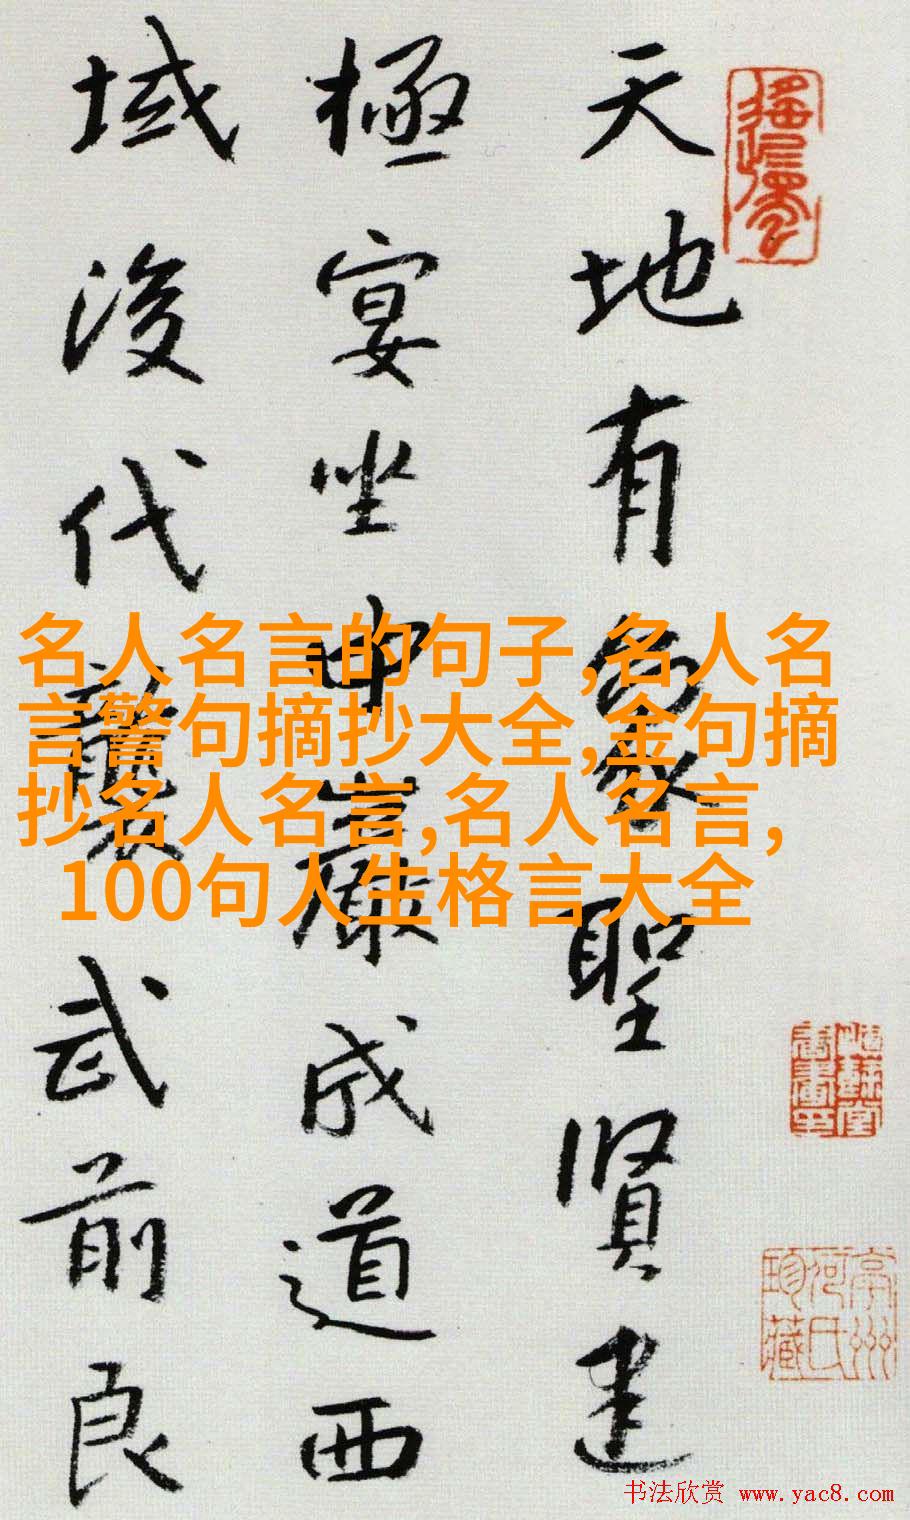 天地有象聖賢建
極宴坐中巖成道西
域後代襲武前良
名人名言的句子,名人名
言警句摘抄大全,金句摘
抄名人名言,名人名言,
100句人生格言大全
珍藏
书法欣赏 www.yac8.com